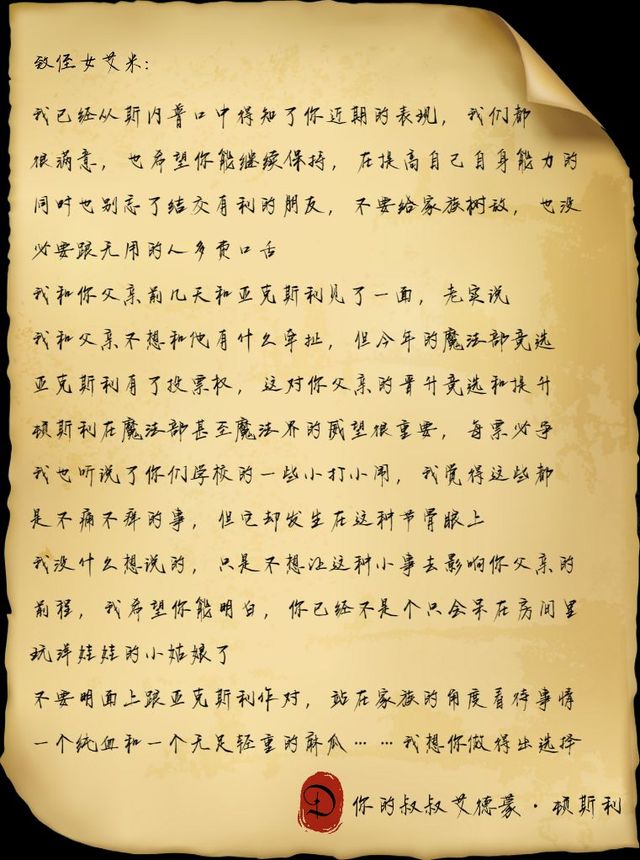 致侄女艾米：
我已经从斯内普口中得知了你近期的表现，我们都
很满意，也希望你能继续保持，在提高自己自身能力的
同时也别忘了结交有利的朋友，不要给家族树敌，也没
必要跟无用的人多费口舌
我和你父亲前几天和亚克斯利见了一面，老实说
我和父亲不想和他有什么牵扯，但今年的魔法部竞选
亚克斯利有了投票权，这对你父亲的晋升竞选和提升
顿斯利在魔法部甚至魔法界的威望很重要，每票必争
我也听说了你们学校的一些小打小闹，我觉得这些都
是不痛不痒的事，但它却发生在这种节骨眼上
我没什么想说的，只是不想让这种小事去影响你父亲的
前程，我希望你能明白，你已经不是个只会呆在房间里
玩洋娃娃的小姑娘了
不要明面上跟亚克斯利作对，站在家族的角度看待事情
一个纯血和一个无足轻重的麻瓜……我想你做得出选择
D 你的叔叔艾德蒙·顿斯利